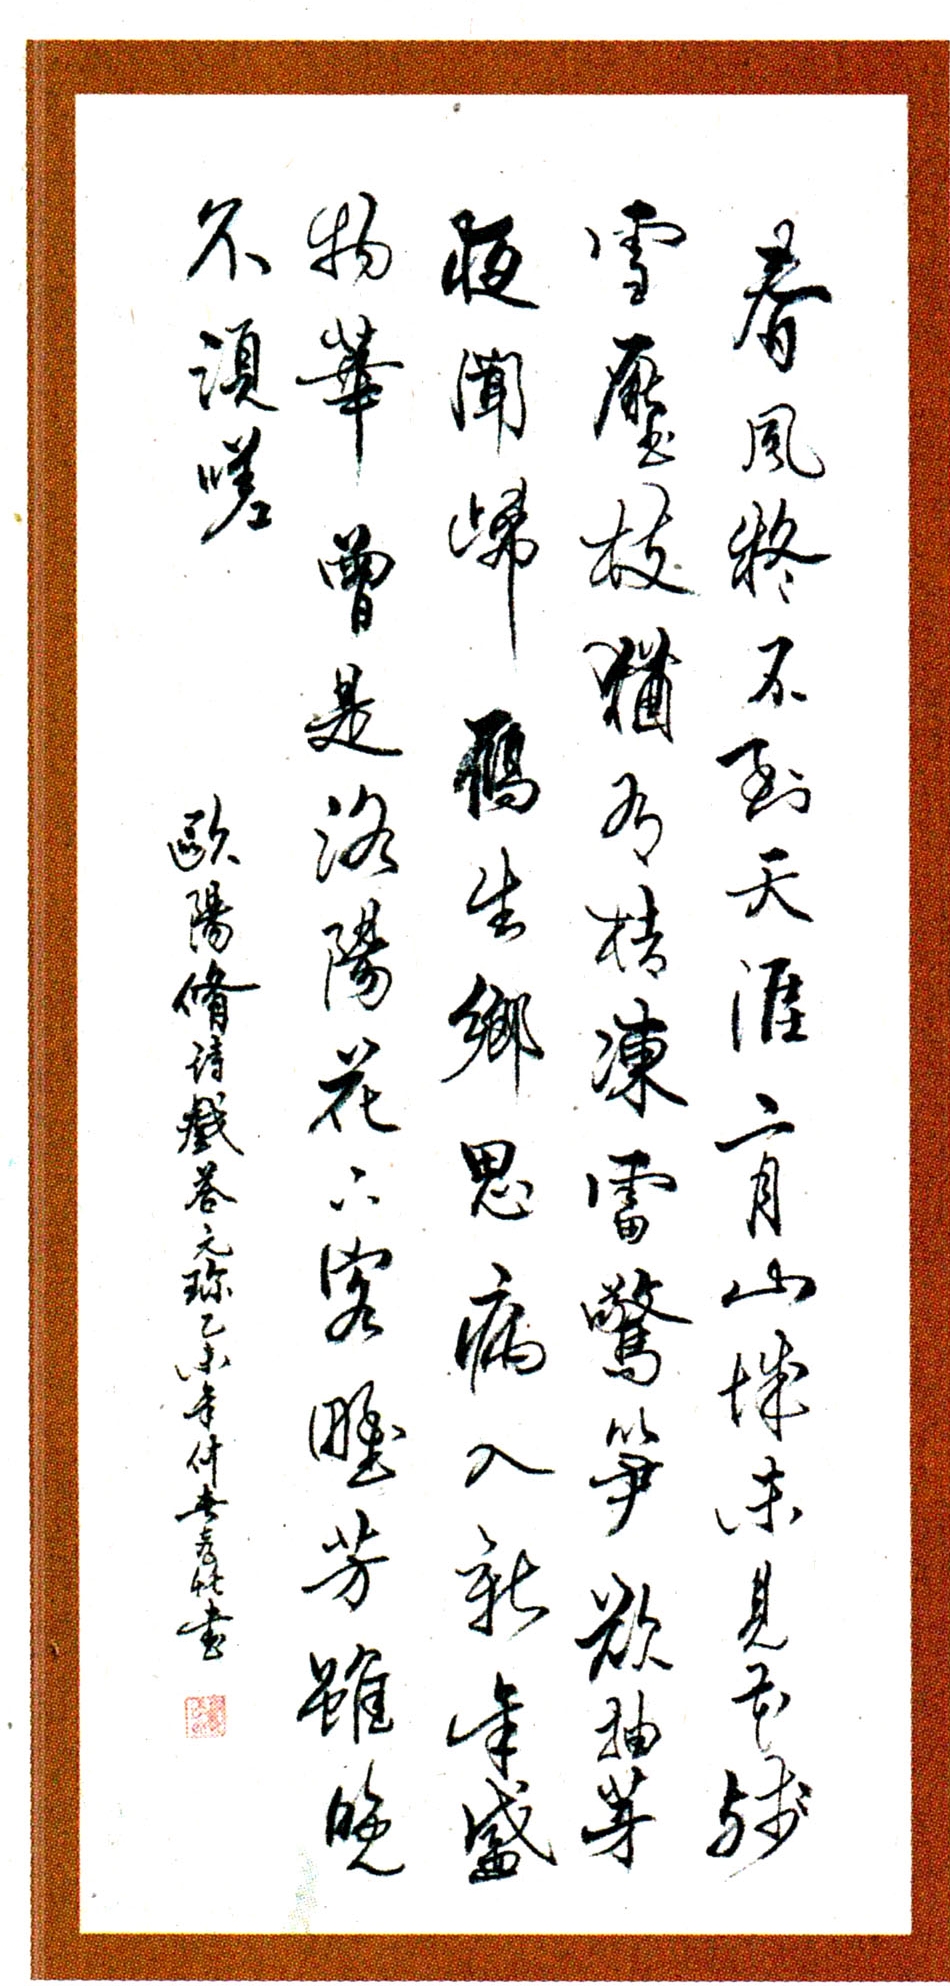 春風疑不到天涯二月山城未見花殘
雪壓枝猶有桔凍雷驚笋欲抽芽
夜聞歸雁生鄉思病入新年盛
物華曾是洛陽花下客野芳雖晚
不須嗟
歐陽脩诗戲答元珍乙未年仲春書